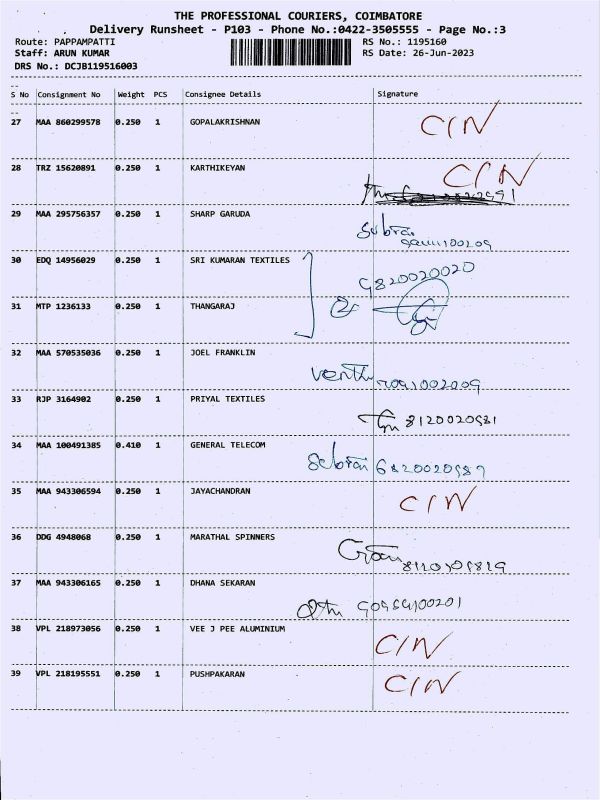 THE PROFESSIONAL COURIERS, COIMBATORE
Delivery Runsheet - P103 - Phone No.:0422-3505555 - Page No.:3
Route: PAPPAMPATTI RS No.: 1195160
Staff: ARUN KUMAR RS Date: 26-Jun-2023
DRS No.: DCJB119516003
S No Consignment No Weight PCS Consignee Details Signature
27 MAA 860299578 0.250 1 GOPALAKRISHNAN C/N
28 TRZ 15620891 0.250 1 KARTHIKEYAN C/N
29 MAA 295756357 0.250 1 SHARP GARUDA
30 EDQ 14956029 0.250 1 SRI KUMARAN TEXTILES 9820020020
31 MTP 1236133 0.250 1 THANGARAJ
32 MAA 570535036 0.250 1 JOEL FRANKLIN
33 RJP 3164902 0.250 1 PRIYAL TEXTILES
34 MAA 100491385 0.410 1 GENERAL TELECOM
35 MAA 943306594 0.250 1 JAYACHANDRAN C/N
36 DDG 4948068 0.250 1 MARATHAL SPINNERS
37 MAA 943306165 0.250 1 DHANA SEKARAN
38 VPL 218973056 0.250 1 VEE J PEE ALUMINIUM C/N
39 VPL 218195551 0.250 1 PUSHPAKARAN C/N